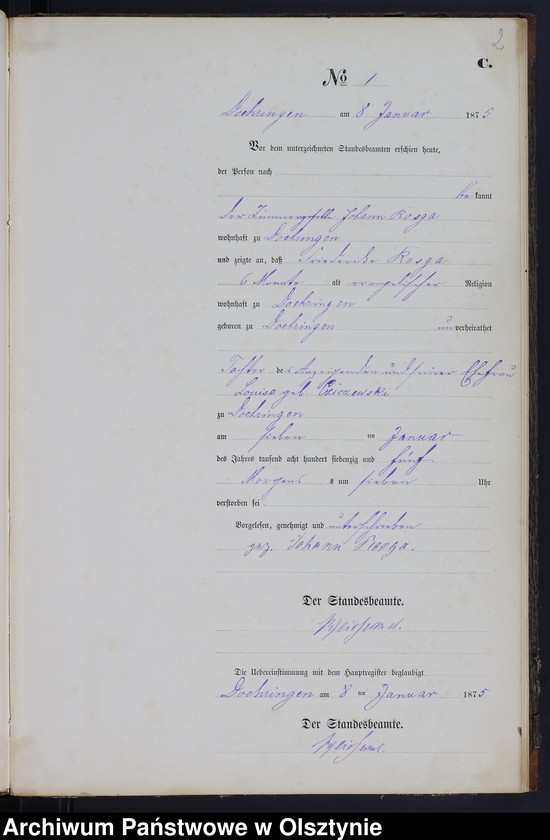 2
C.
No 1
Doehringen am 8 Januar 1875
Vor dem unterzeichneten Standesbeamten erschien heute,
der Person nach
bekannt
der Zimmergeselle Johann Rosga
wohnhaft zu Doehringen
und zeigte an, daß Friederike Rosga
6 Monate alt evangelischer Religion
wohnhaft zu Doehringen
geboren zu Doehringen unverheirathet
Tochter des Anzeigenden und seiner Ehefrau
Louise geb
zu Doehringen
am sieben ten Januar
des Jahres tausend acht hundert siebenzig und fünf
Morgens um sieben Uhr
verstorben sei
Vorgelesen, genehmigt und unterschrieben
gez. Johann Rosga.
Der Standesbeamte.
Die Uebereinstimmung mit dem Hauptregister beglaubigt
Doehringen am 8 ten Januar 1875
Der Standesbeamte.
Archiwum Państwowe w Olsztynie